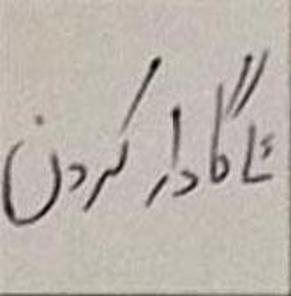 تاگادار کردن